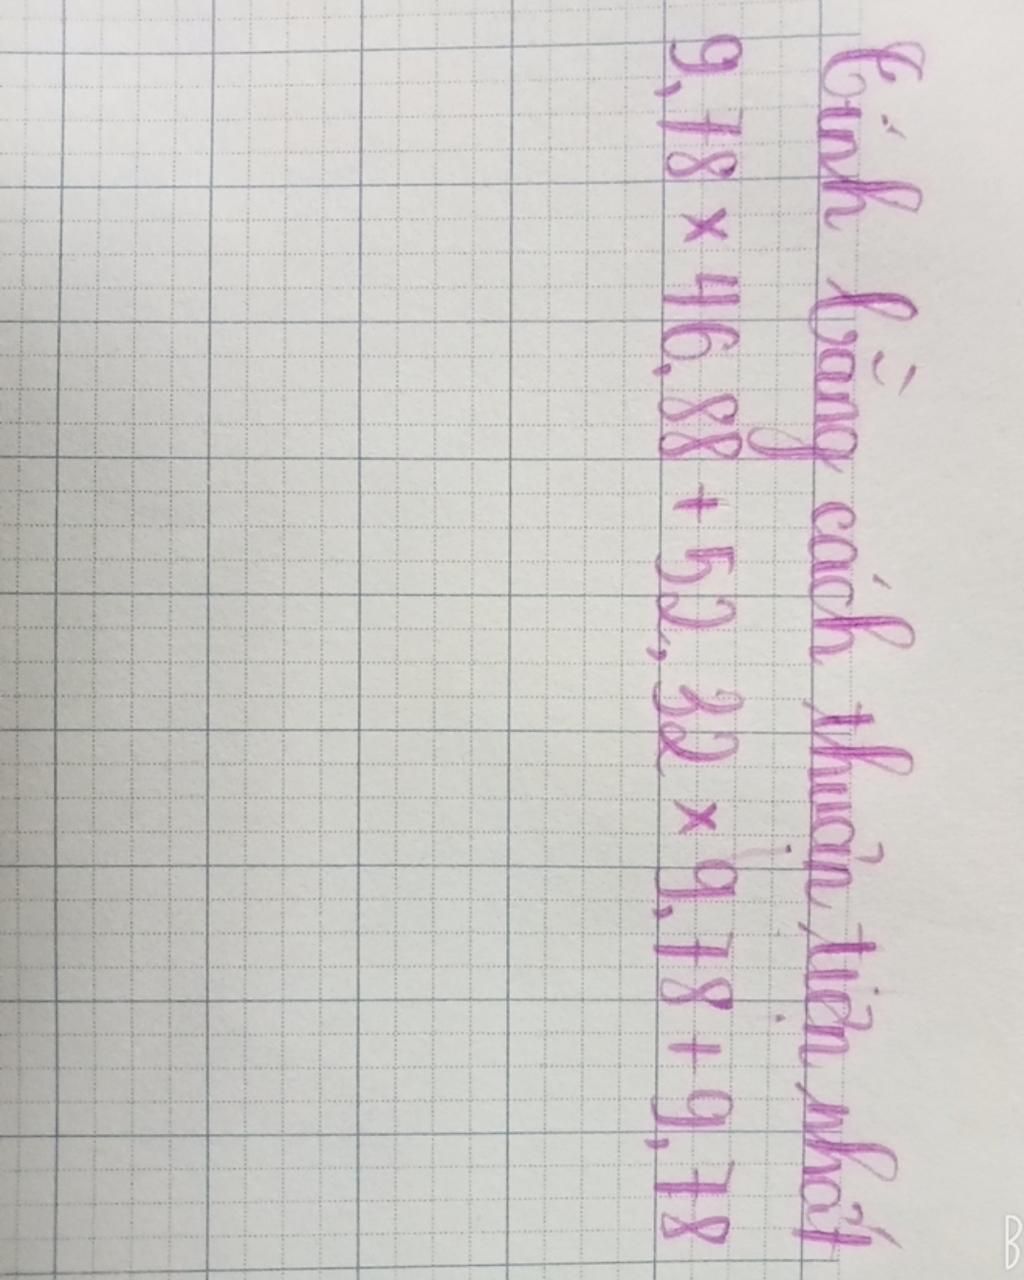 Tính bằng cách thuận tiện nhất
9,78 x 46,88 + 52,32 x 9,78 + 9,78
B